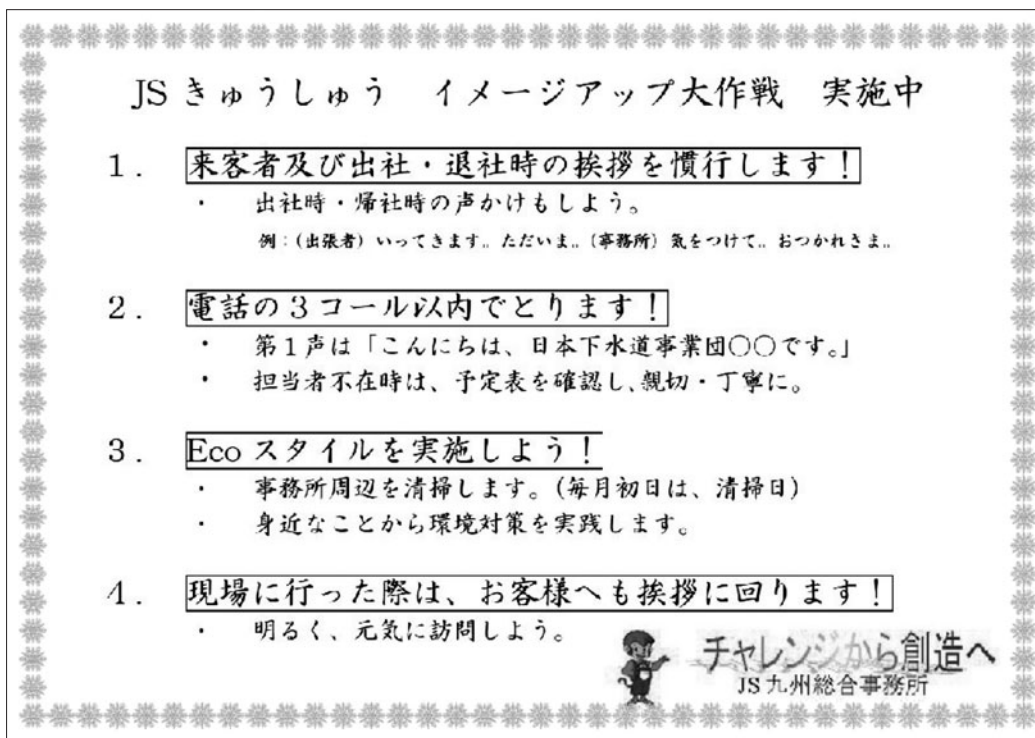 JSきゅうしゅう　イメージアップ大作戦　実施中
1．　来客者及び出社・退社時の挨拶を慣行します！
・　出社時・帰社時の声かけもしよう。
例：(出張者) いってきます.. ただいま.. (事務所) 気をつけて.. おつかれさま..
2．　電話の3コール以内でとります！
・　第1声は「こんにちは、日本下水道事業団〇〇です。」
・　担当者不在時は、予定表を確認し、親切・丁寧に。
3．　Ecoスタイルを実施しよう！
・　事務所周辺を清掃します。(毎月初日は、清掃日)
・　身近なことから環境対策を実践します。
4．　現場に行った際は、お客様へも挨拶に回ります！
・　明るく、元気に訪問しよう。
チャレンジから創造へ
JS九州総合事務所